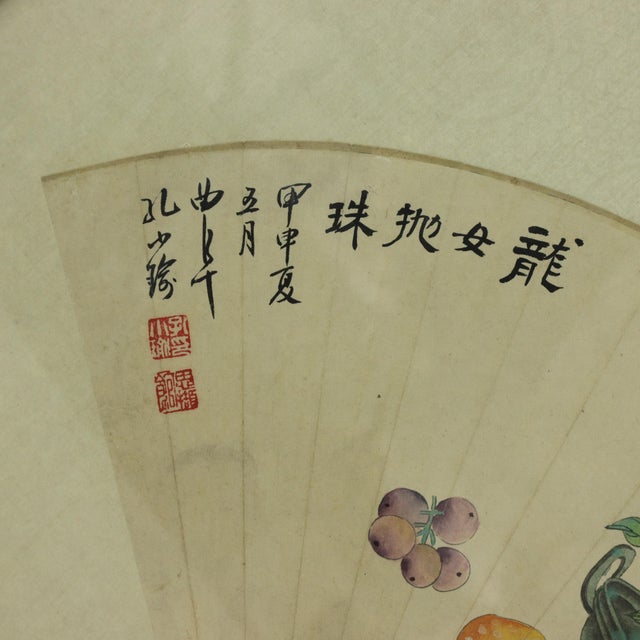 龍女抛珠
甲申夏
五月
曲阜
孔小瑜